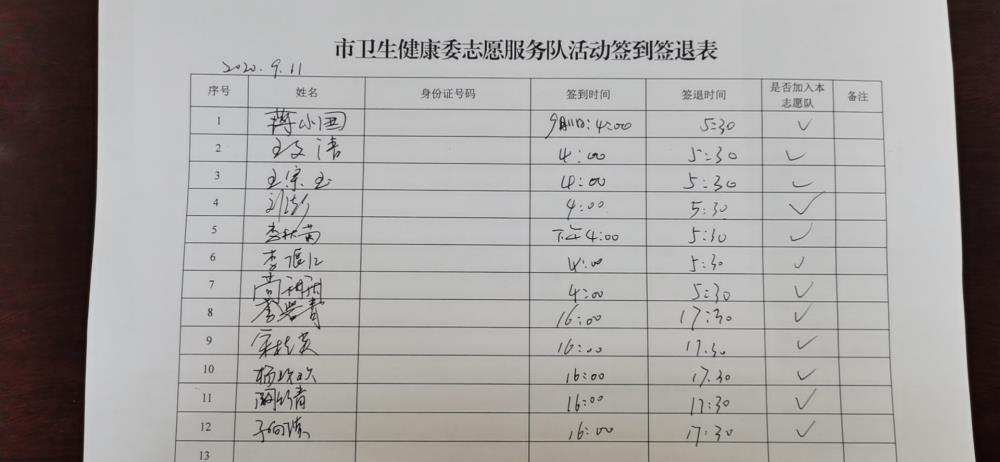 市卫生健康委志愿服务队活动签到签退表
2020.9.11
序号 姓名 身份证号码 签到时间 签退时间 是否加入本志愿队 备注
1 蒋小国 4:00 5:30 ✓
2 王文清 4:00 5:30 ✓
3 王宗玉 4:00 5:30 ✓
4 刘澎 4:00 5:30 ✓
5 李秋菊 下午4:00 5:30 ✓
6 李 4:00 5:30 ✓
7 4:00 5:30 ✓
8 李 青 16:00 17:30 ✓
9 英 16:00 17.30 ✓
10 杨欢欢 16:00 17.30 ✓
11 青 16:00 17:30 ✓
12 16:00 17:30 ✓
13